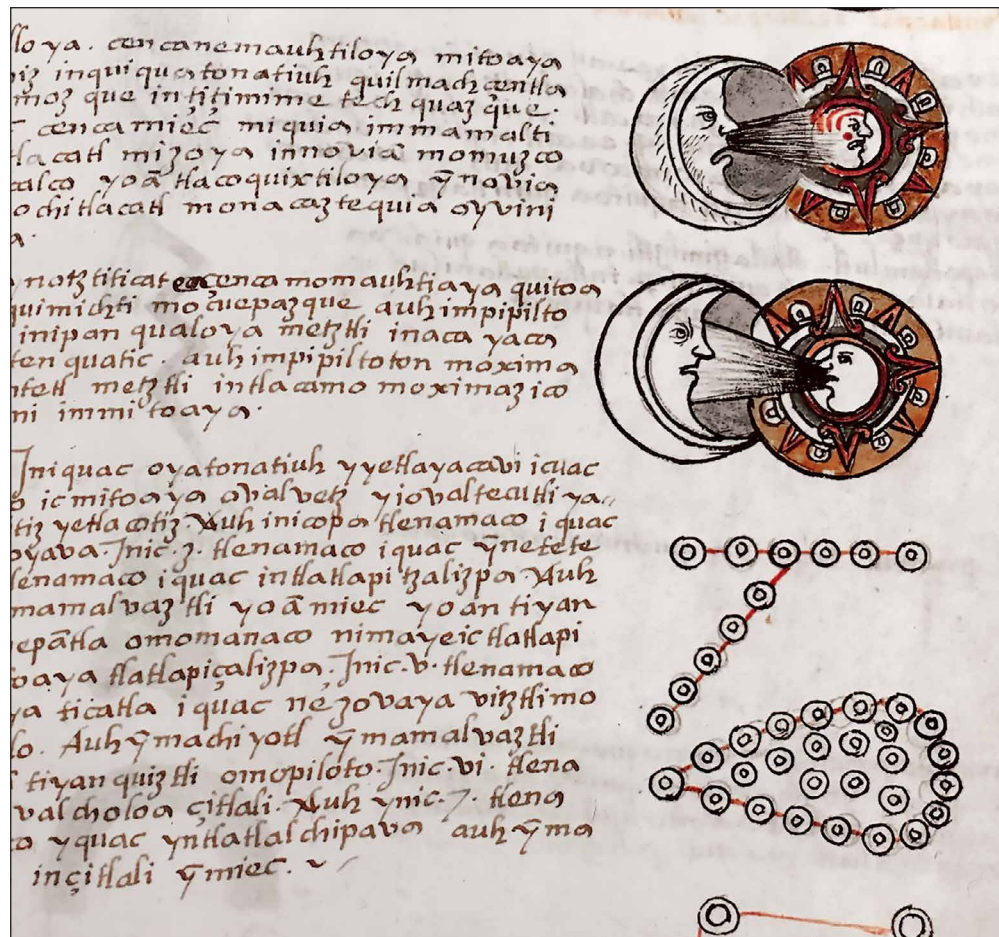 lloya. cencanemauhtiloya mitoaya
iz inquiquatonatiuh quilmachcentla
moz que intiçimime techquazque.
cencamiec miquia immamalti
tlacatl mizoya innoviā momuzco
calco yoā tlacoquixtiloya ȳnovia
ochitlacatl monacaztequia oyvini
a.
notztiticat ençenca momauhtiaya quitoa
quimichti mocuepazque auh impipilto
inipan qualoya metztli inaca yaca
tenquatic. auh impipiltoton moxima
ntetl metztli intlacamo moximazico
ni immitoaya.
Iniquac oyatonatiuh yyetlayacavi icuac
icmitoaya ovalvetz yiovaltecutli ya
tiz yetlacotiz. Auh inicopa tlenamaco iquac
oyava. Inic. 3. tlenamaco iquac ȳnetete
lenamaco iquac intlatlapitzalizpa. Auh
mamalvaztli yoā miec yoan tiyan
epātla omomanaco nimayeic tlatlapi
oaya tlatlapiçalizpa. Inic. v. tlenamaco
ya ticatla iquac neçovaya vitztlimo
lo. Auh ȳmachiyotl ȳmamalvaztli
tiyanquiztli omopiloto. Inic. vi. tlena
valcholoa çitlali. Auh ynic. 7. tlena
co yquac yntlatlalchipava auh ȳma
inçitlali ȳmiec.